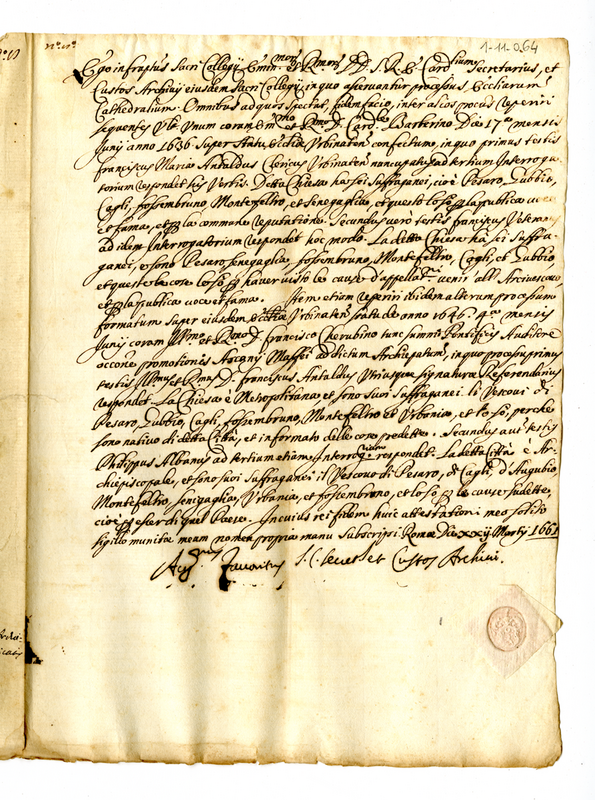 1-11-0.64
n.° n.°
Ego infraptus Sacri Collegij Emin.morum et Rmorum DD. S. R. E. Cardlium Secretarius, et
Custos Archivij eiusdem Sacri Collegij in quo asservantur processus Eccliarum
Cathedralium. Omnibus ad quos spectat, fidem facio, inter alios processus reperiri
sequentes Vtℓ Vnum coram Emmo et Rmo D. Card.le Barberino Die 17.a mensis
Junij anno 1636 super statu Ecclia Vrbinaten confectum, in quo primus testis
Franciscus Maria Antaldus Clericus Vrbinaten nuncupatus ad tertium Interroga-
torium respondet his Verbis. Detta Chiesa ha sei suffraganei, cioè Pesaro, Gubbio,
Cagli, fossombruno Montefeltro, et Senegaglia, et questo lo sò p la publica voce
et fama, et p la commune reputatione. Secundus verò testis franciscus Veterani
ad idem Interrogatorium respondet hoc modo. La detta Chiesa hà sei suffra-
ganei, e sono Pesaro, Senegaglia, fossombruno, Montefeltro, Cagli, et Gubbio
et queste cose lo sò p haver visto le cause d'appellat.ni venir all'Arcivescovo
et p la publica voce et fama. Item etiam reperiri ibidem alterum processum
formatum super eiusdem Ecclia Vrbinaten statu de anno 1646. 4.a mensis
Junij coram Illmo et Rmo D. Francisco Cherubino tunc summi Pontificis Auditore
accone promotionis Ascanij Maffei ad dictum Archiepatum, in quo processu primus
testis Illmus et Rmus D. franciscus Antaldus Vtriusque signatura Referendarius
respondet. La Chiesa è Metropolitana et sono suoi suffraganei. li Vescovi di
Pesaro, Gubbio, Cagli, fossombruno, Montefeltro et Urbania, et lo sò, perche
sono nativo di detta Città, et informato delle cose predette. Secundus aut testis
Philippus Albanus ad tertium etiam Interrog.rium respondet. La detta Città è Ar-
chiepiscopale, et sono suoi suffraganei il Vescovo di Pesaro, di Cagli, d'Augubio
Montefeltro, senigaglia, Vrbania, et fossombruno, et lo sò p le cause sudette,
cioè p esser di quel Paese. In cuius rei fidem huic attestationi meo solito
sigillo munitæ meam nomen propria manu subscripsi. Romæ Die xxij Martij 1661
Aug.nus Favoritus S. C. Secret.s et Custos Archivi.